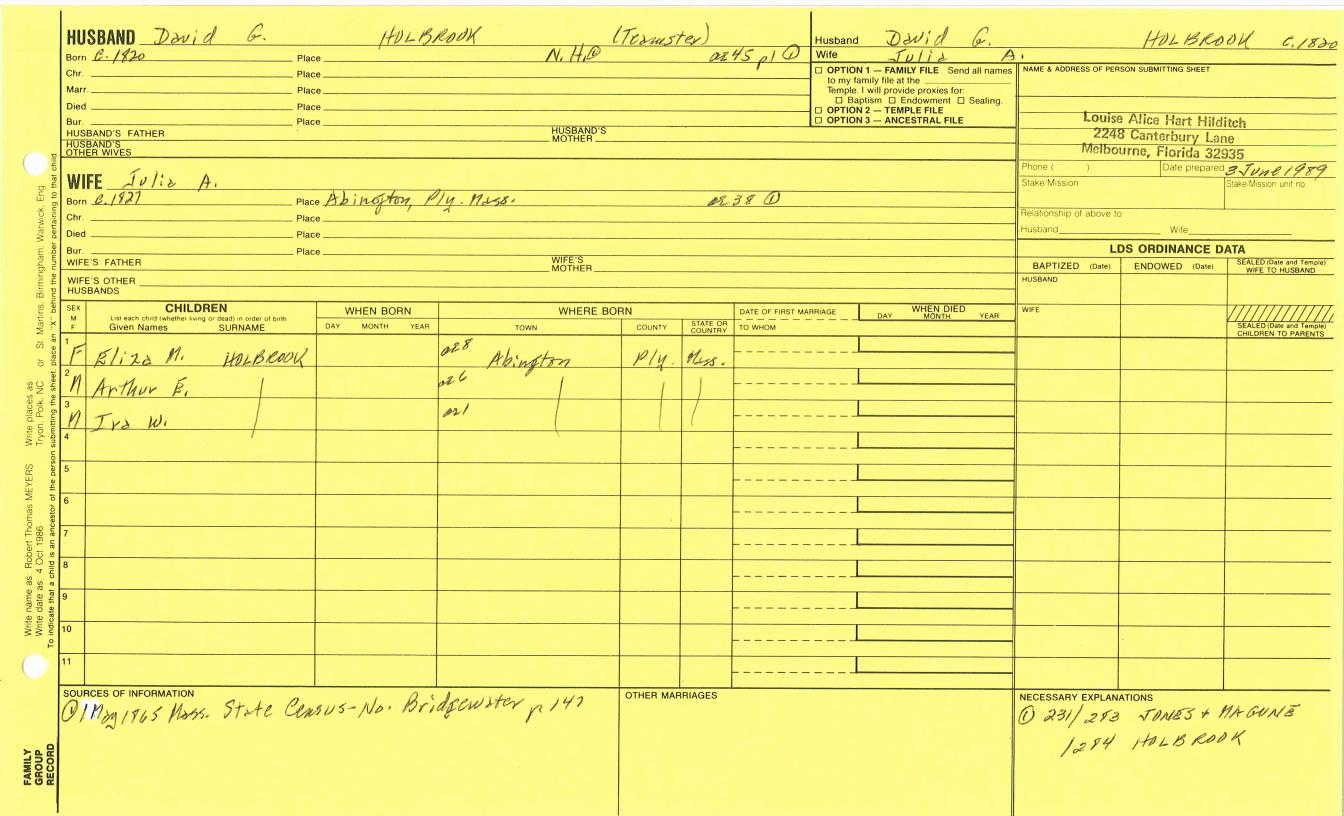 HUSBAND David G. HOLBROOK (Teamster)
Born c.1820 Place N.H. ① ae 45 p1 ①
Chr. Place
Marr. Place
Died Place
Bur. Place
HUSBAND'S FATHER HUSBAND'S MOTHER
HUSBAND'S OTHER WIVES
Husband David G. HOLBROOK c.1820
Wife Julia A.
☐ OPTION 1 — FAMILY FILE Send all names
to my family file at the
Temple. I will provide proxies for:
☐ Baptism ☐ Endowment ☐ Sealing.
☐ OPTION 2 — TEMPLE FILE
☐ OPTION 3 — ANCESTRAL FILE
NAME & ADDRESS OF PERSON SUBMITTING SHEET
Louise Alice Hart Hilditch
2248 Canterbury Lane
Melbourne, Florida 32935
Phone ( ) Date prepared 3 June 1989
Stake/Mission Stake/Mission unit no.
Relationship of above to
Husband Wife
WIFE Julia A.
Born c.1827 Place Abington, Ply. Mass. ae 38 ①
Chr. Place
Died Place
Bur. Place
WIFE'S FATHER WIFE'S MOTHER
WIFE'S OTHER HUSBANDS
LDS ORDINANCE DATA
BAPTIZED (Date) ENDOWED (Date) SEALED (Date and Temple) WIFE TO HUSBAND
HUSBAND
WIFE
SEALED (Date and Temple) CHILDREN TO PARENTS
SEX M F
CHILDREN
List each child (whether living or dead) in order of birth
Given Names SURNAME
WHEN BORN
DAY MONTH YEAR
WHERE BORN
TOWN COUNTY STATE OR COUNTRY
DATE OF FIRST MARRIAGE
TO WHOM
WHEN DIED
DAY MONTH YEAR
1 F Eliza M. HOLBROOK ae 28 Abington Ply. Mass.
2 M Arthur E. ae 6
3 M Ira W. ae 1
4
5
6
7
8
9
10
11
SOURCES OF INFORMATION
① 1 May 1865 Mass. State Census-No. Bridgewater p 147
OTHER MARRIAGES
NECESSARY EXPLANATIONS
① 231/283 JONES + MAGUNE
/284 HOLBROOK
Write name as: Robert Thomas MEYERS Write places as: Tryon, Polk, NC or St. Martins, Birmingham, Warwick, Eng.
Write date as: 4 Oct 1986
To indicate that a child is an ancestor of the person submitting the sheet, place an "X" behind the number pertaining to that child
FAMILY
GROUP
RECORD